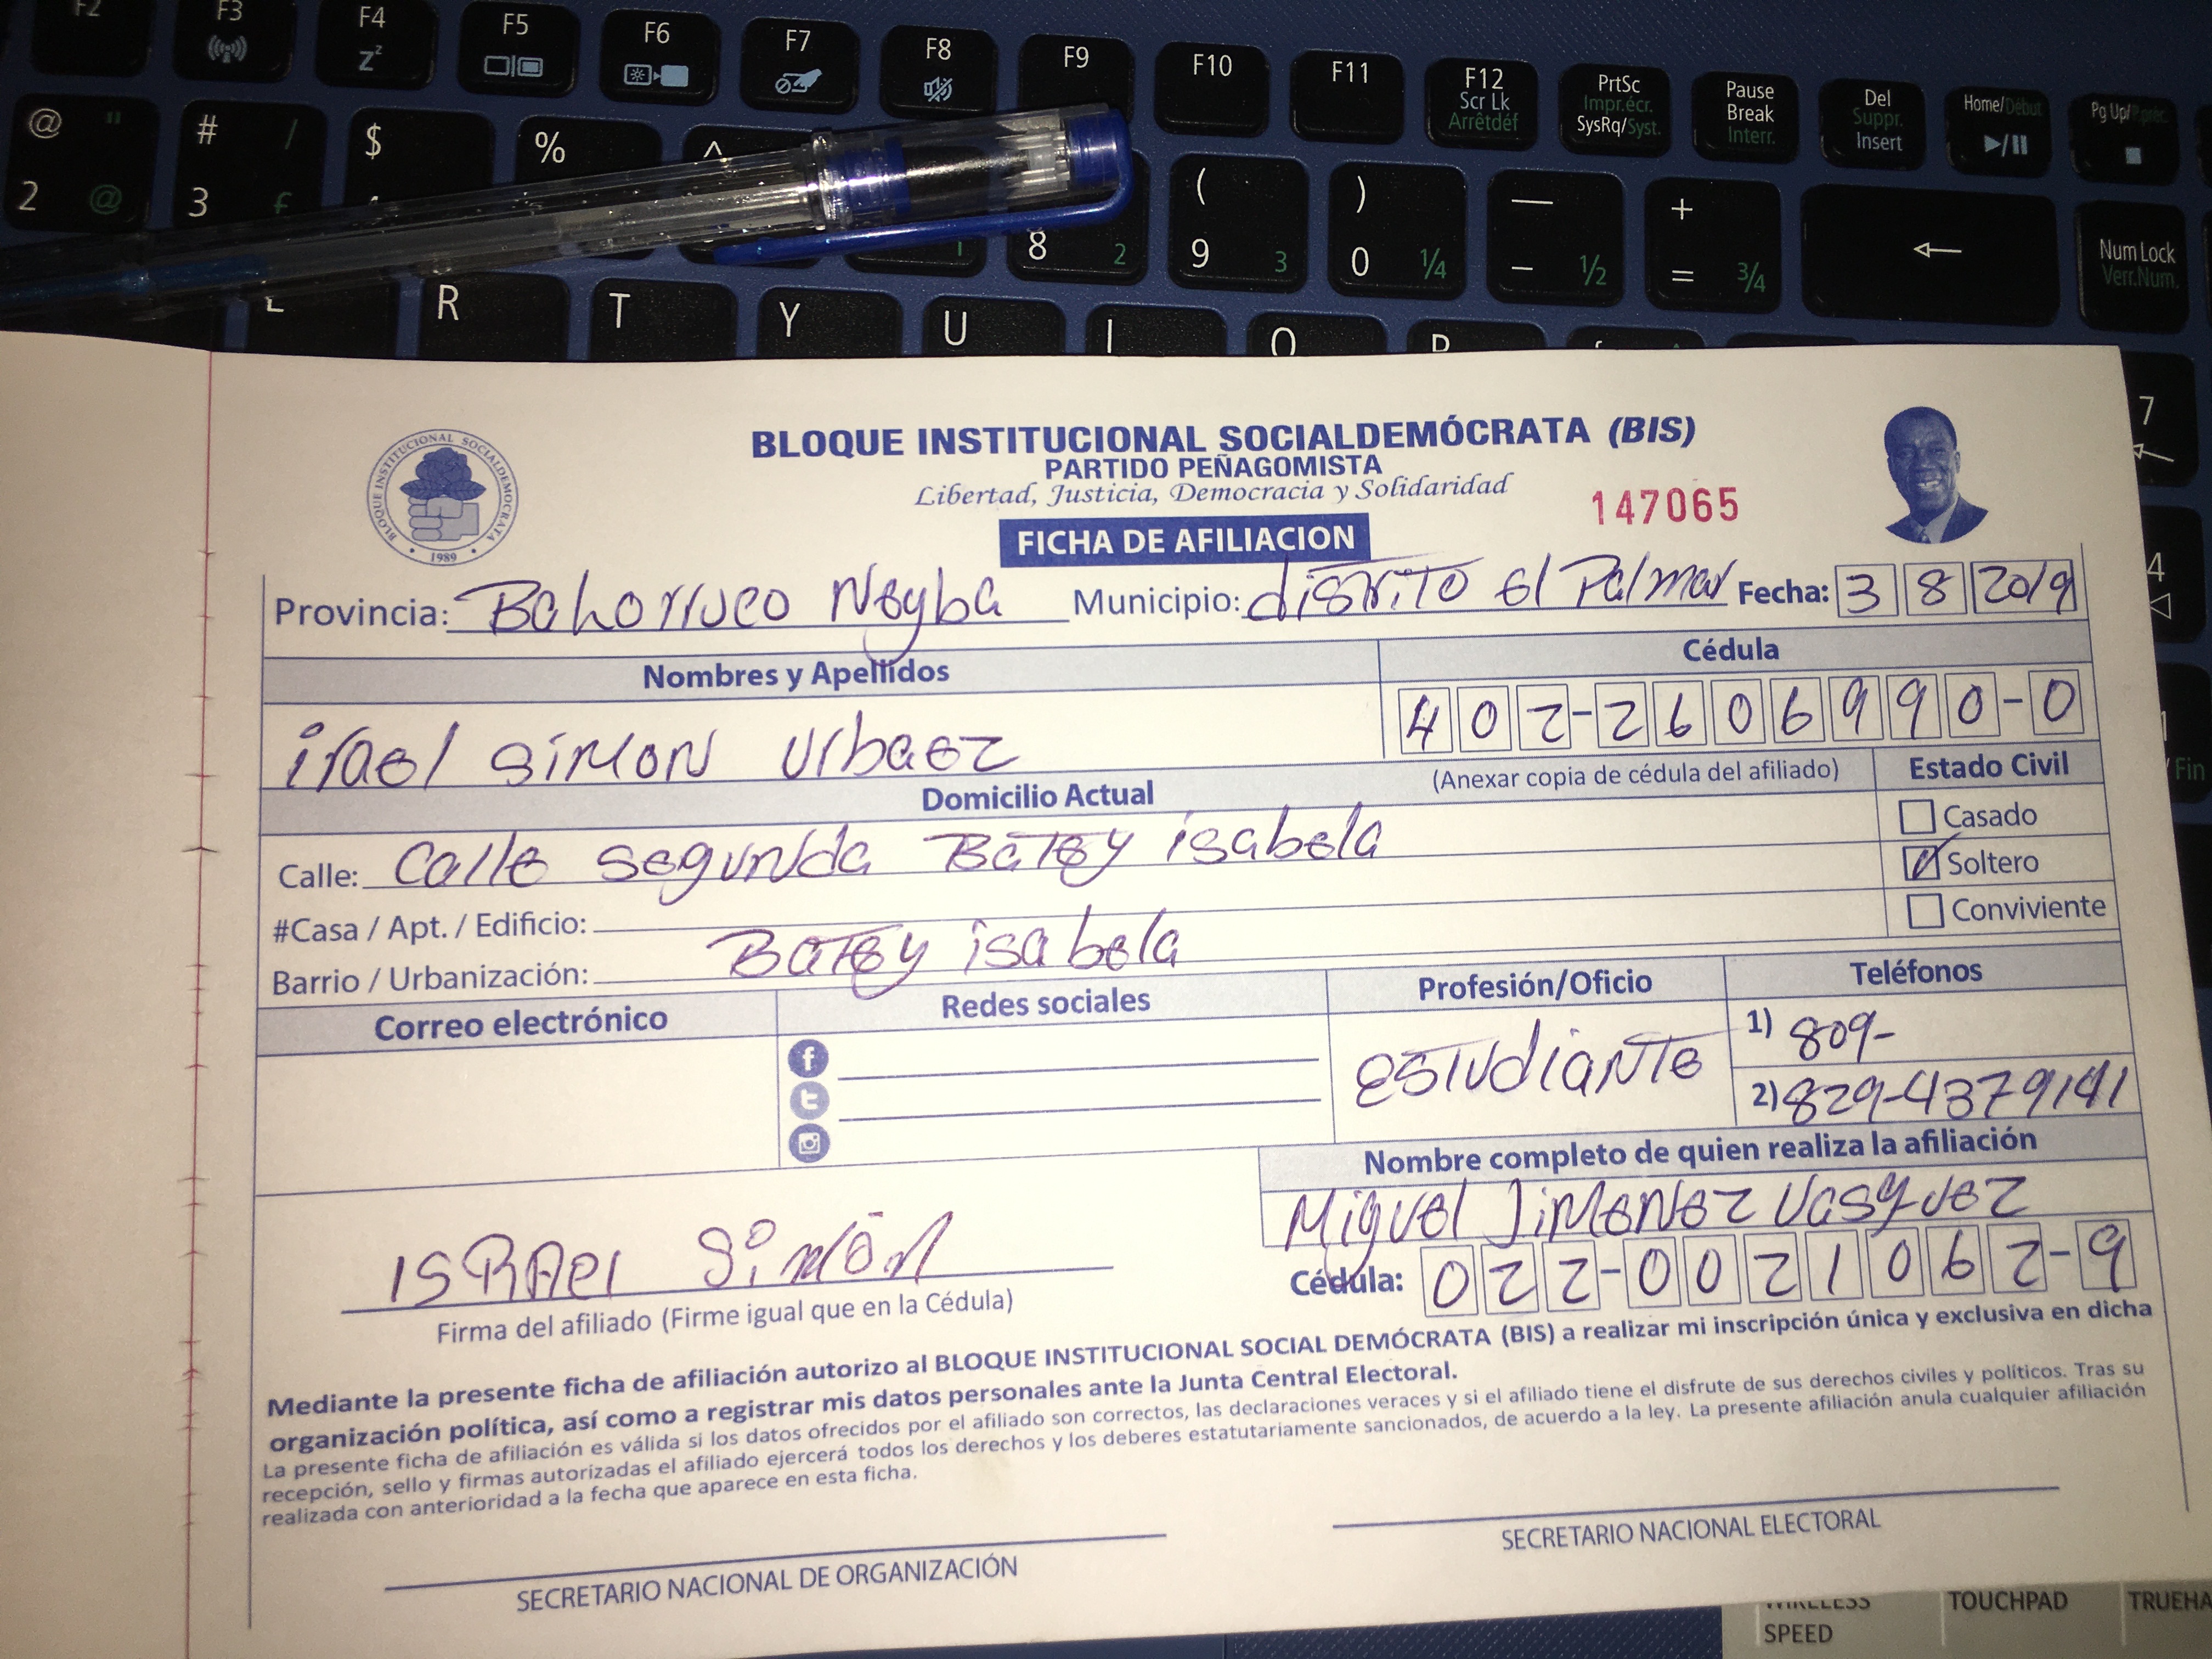 F2 F3 F4 F5 F6 F7 F8 F9 F10 F11 F12 PrtSc Pause Del Home/Début Pg Up/
Z² Scr Lk Impr.écr. Break Suppr.
Arrêtdéf SysRq/Syst. Interr. Insert
@ " # / $ % ^ ( ) — +
2 @ 3 £ 1 8 2 9 3 0 ¼ - ½ = ¾ Num Lock
Verr.Num.
E R T Y U I O P
7
4
1
/ Fin
BLOQUE INSTITUCIONAL SOCIALDEMOCRATA
• 1989 •
BLOQUE INSTITUCIONAL SOCIALDEMÓCRATA (BIS)
PARTIDO PEÑAGOMISTA
Libertad, Justicia, Democracia y Solidaridad
147065
FICHA DE AFILIACION
Provincia: Bahorruco Neyba Municipio: distrito el Palmar Fecha: 3 8 2019
Nombres y Apellidos Cédula
israel simon urbaez 402-2606990-0
(Anexar copia de cédula del afiliado) Estado Civil
Domicilio Actual
Casado
Calle: Calle segunda Batey isabela
Soltero
#Casa / Apt. / Edificio:
Conviviente
Barrio / Urbanización: Batey isabela
Correo electrónico Redes sociales Profesión/Oficio Teléfonos
f estudiante 1) 809-
t 2) 829-4379141
Nombre completo de quien realiza la afiliación
Miguel Jimenez Vasquez
ISRAel Simón
Cédula: 022-0021062-9
Firma del afiliado (Firme igual que en la Cédula)
Mediante la presente ficha de afiliación autorizo al BLOQUE INSTITUCIONAL SOCIAL DEMÓCRATA (BIS) a realizar mi inscripción única y exclusiva en dicha
organización política, así como a registrar mis datos personales ante la Junta Central Electoral.
La presente ficha de afiliación es válida si los datos ofrecidos por el afiliado son correctos, las declaraciones veraces y si el afiliado tiene el disfrute de sus derechos civiles y políticos. Tras su
recepción, sello y firmas autorizadas el afiliado ejercerá todos los derechos y los deberes estatutariamente sancionados, de acuerdo a la ley. La presente afiliación anula cualquier afiliación
realizada con anterioridad a la fecha que aparece en esta ficha.
SECRETARIO NACIONAL DE ORGANIZACIÓN SECRETARIO NACIONAL ELECTORAL
WIRELESS TOUCHPAD
SPEED